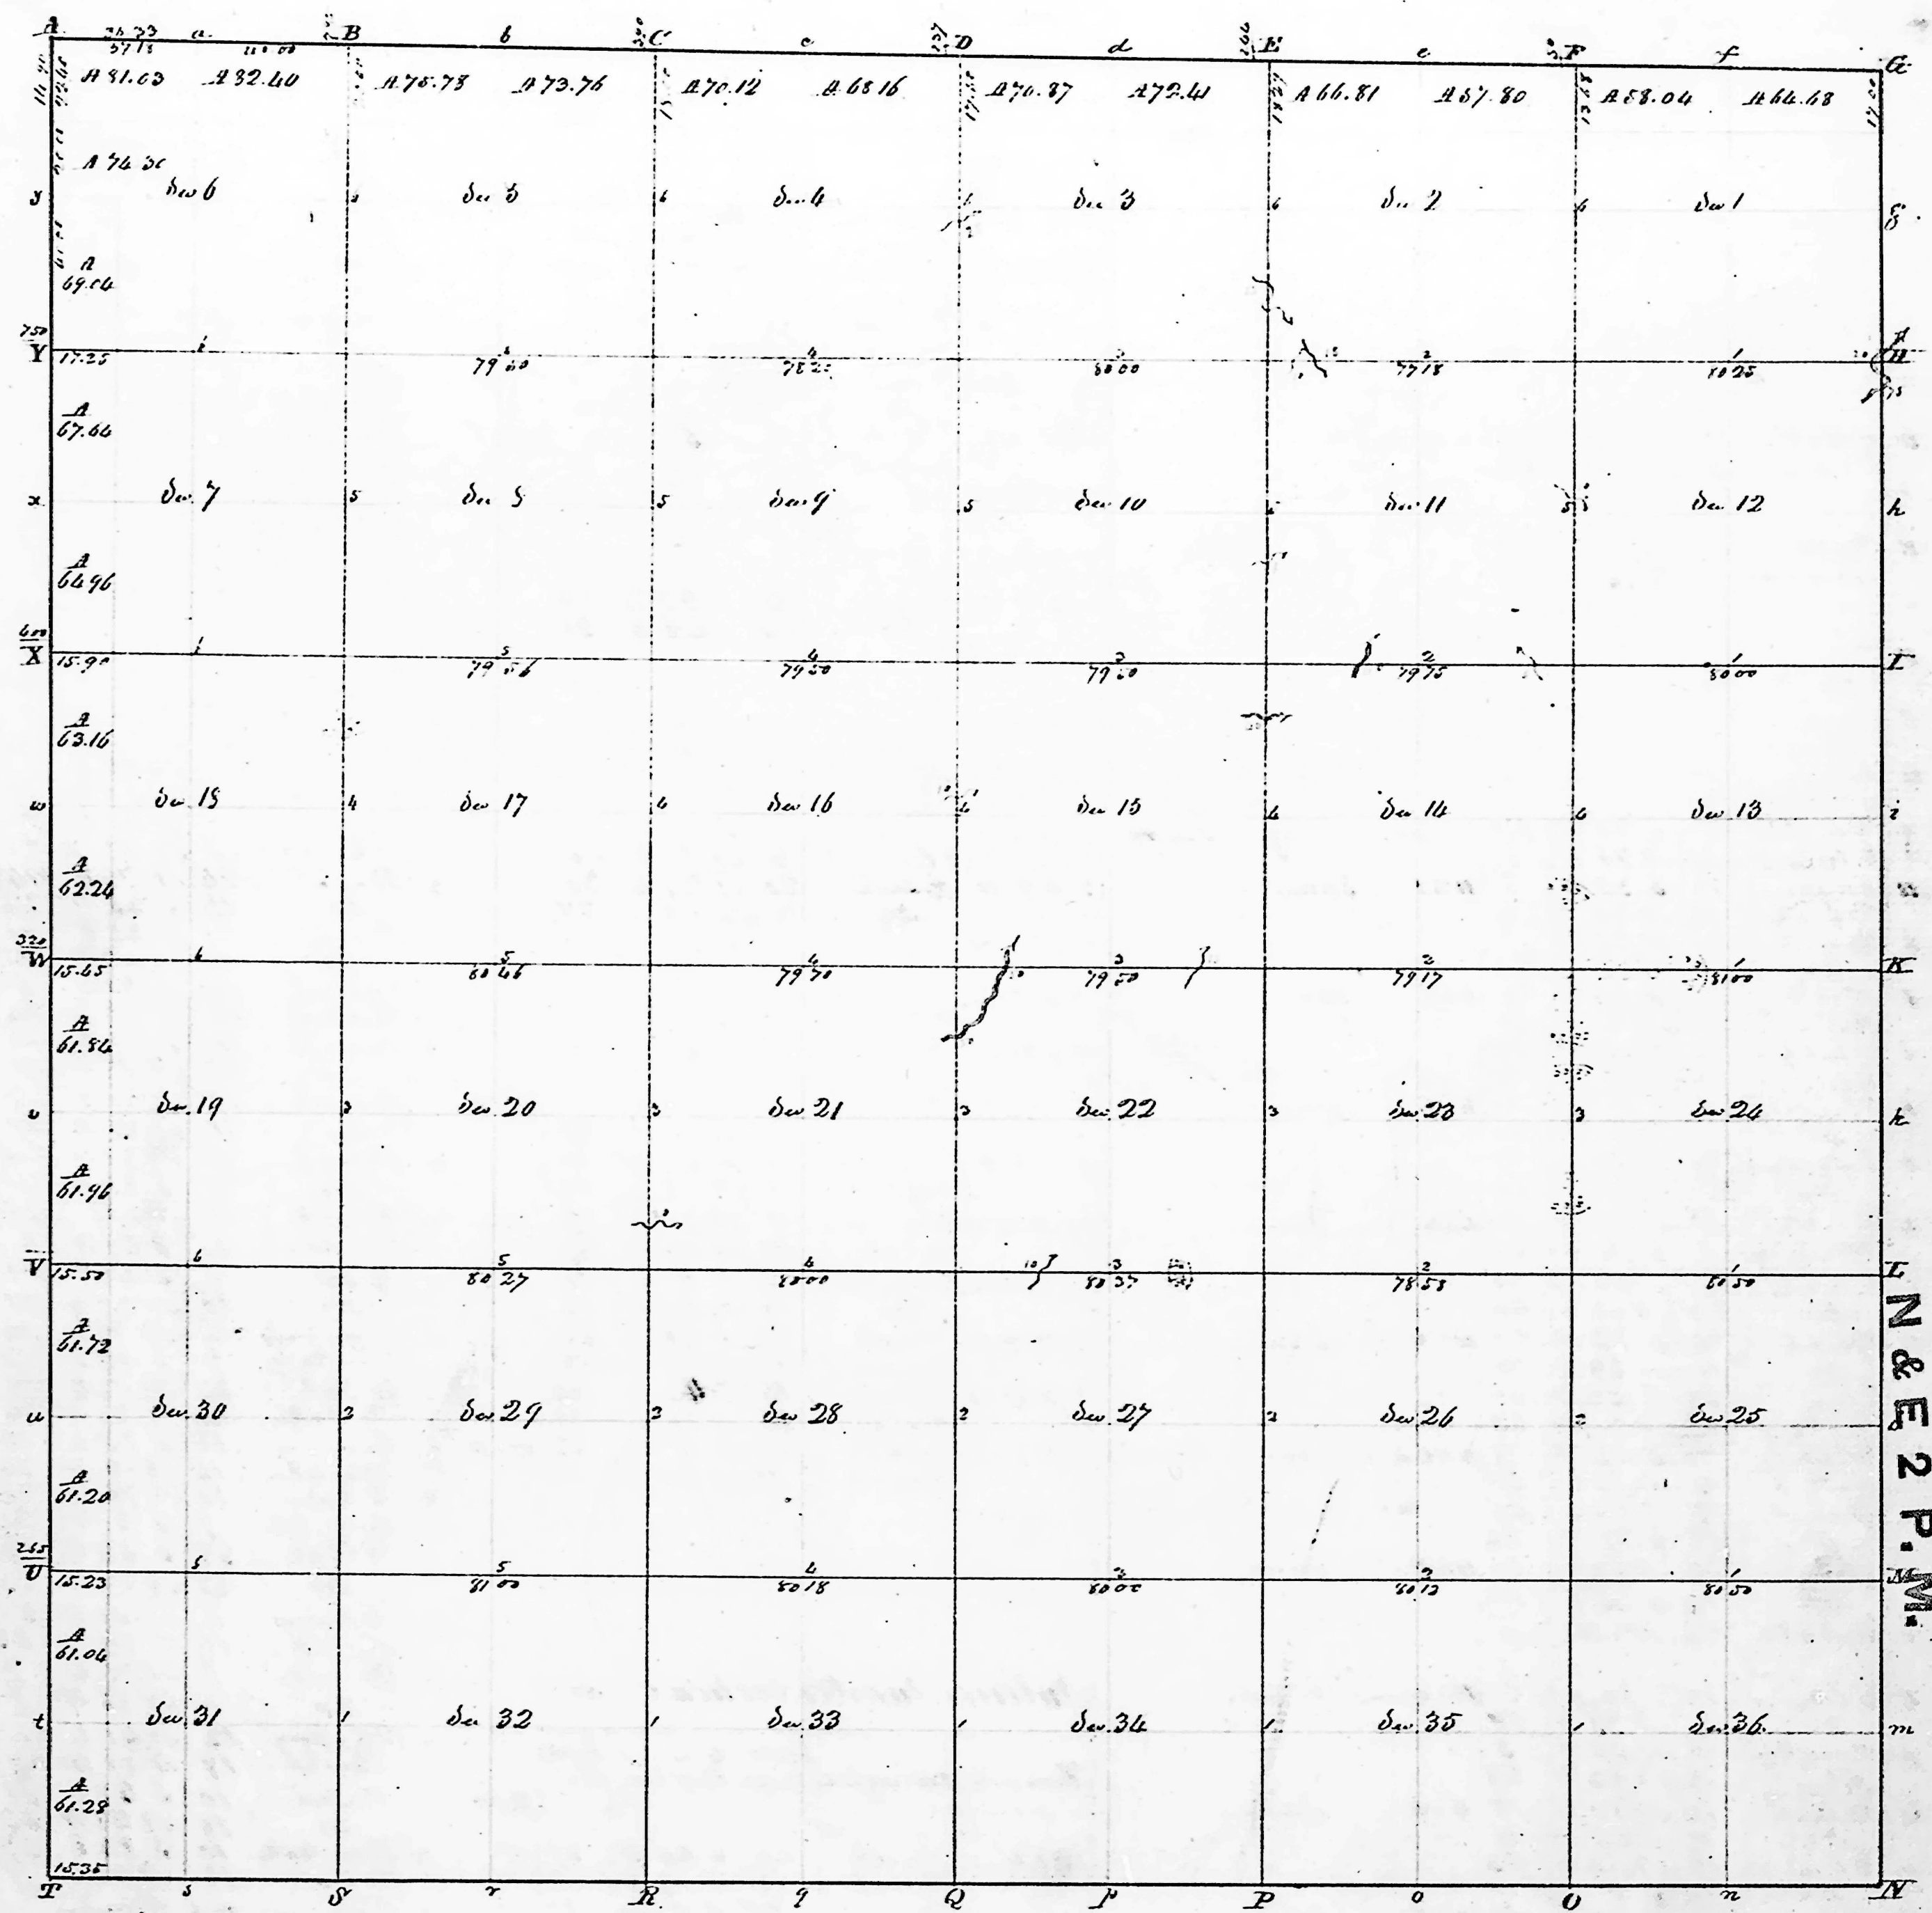 A a B b C c D d E e F f G
A 81.63 A 82.40 A 75.78 A 73.76 A 70.12 A 68.16 A 70.87 A 72.41 A 66.81 A 57.80 A 58.04 A 64.68
A 74.36
y Sec 6 Sec 5 6 Sec 4 Sec 3 6 Sec 2 6 Sec 1 g
A
69.04
750
Y 17.25 79 4 78 80 00 2 77 18 1 80 25 H
A
67.64
x Sec 7 5 Sec 8 5 Sec 9 5 Sec 10 Sec 11 Sec 12 h
A
64.96
400
X 15.90 5 79 56 4 79 50 3 79 50 2 79 75 1 80 00 I
A
63.16
w Sec 18 4 Sec 17 4 Sec 16 4 Sec 15 4 Sec 14 4 Sec 13 i
A
62.24
320
W 15.65 6 5 80 46 4 79 70 3 79 50 2 79 17 1 81 00 K
A
61.84
v Sec 19 3 Sec 20 3 Sec 21 3 Sec 22 3 Sec 23 3 Sec 24 k
A
61.96
V 15.50 6 5 80 27 4 80 00 10 3 80 37 2 78 58 1 80 50 L
A
61.72
u Sec 30 2 Sec 29 2 Sec 28 2 Sec 27 2 Sec 26 2 Sec 25
A
61.20
265
U 15.23 5 81 00 4 80 18 3 80 00 2 80 12 1 80 50 M
A
61.04
t Sec 31 1 Sec 32 1 Sec 33 1 Sec 34 1 Sec 35 1 Sec 36 m
A
61.28
15.35
T s S r R q Q p P o O n N
N & E 2 P. M.